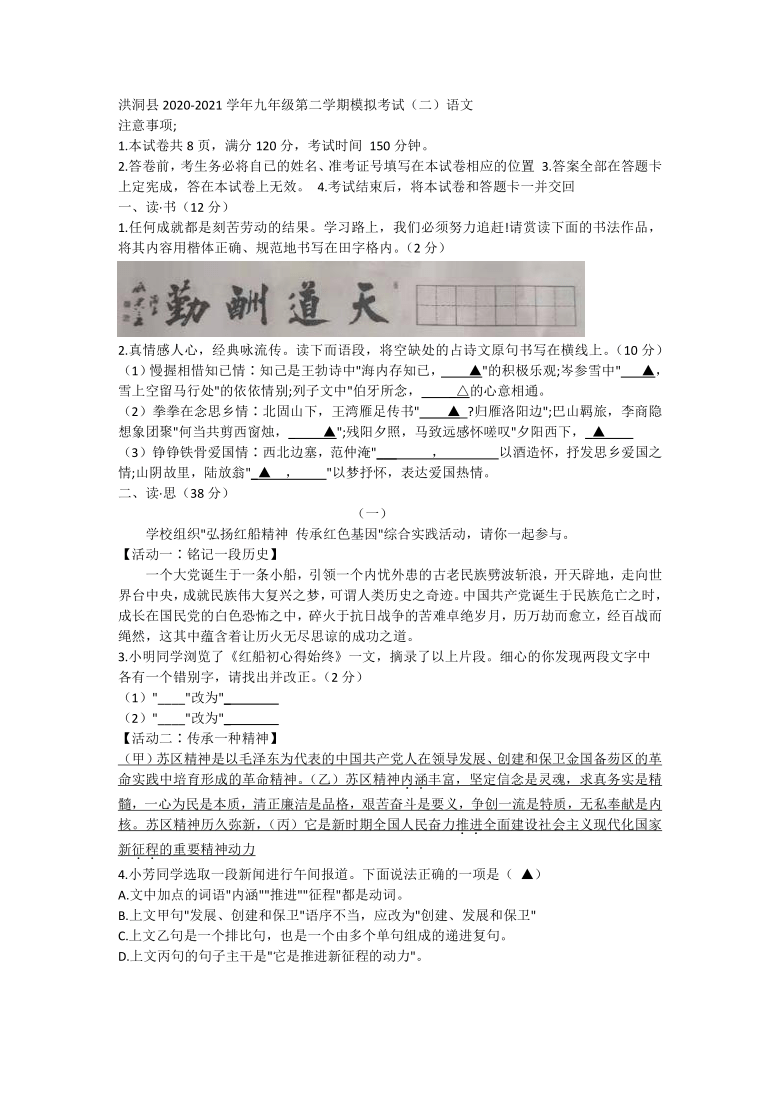 洪洞县 2020-2021 学年九年级第二学期模拟考试（二）语文
注意事项;
1.本试卷共 8 页，满分 120 分，考试时间 150 分钟。
2.答卷前，考生务必将自已的姓名、准考证号填写在本试卷相应的位置 3.答案全部在答题卡
上定完成，答在本试卷上无效。 4.考试结束后，将本试卷和答题卡一并交回
一、读·书（12 分）
1.任何成就都是刻苦劳动的结果。学习路上，我们必须努力追赶!请赏读下面的书法作品，
将其内容用楷体正确、规范地书写在田字格内。（2 分）
勤酬道天
2.真情感人心，经典咏流传。读下而语段，将空缺处的占诗文原句书写在横线上。（10 分）
（1）慢握相惜知已情：知己是王勃诗中"海内存知己，____▲"的积极乐观;岑参雪中"___▲，
雪上空留马行处"的依依情别;列子文中"伯牙所念，_____△的心意相通。
（2）拳拳在念思乡情：北固山下，王湾雁足传书"____▲_?归雁洛阳边";巴山羁旅，李商隐
想象团聚"何当共剪西窗烛，_____▲";残阳夕照，马致远感怀嗟叹"夕阳西下，_▲____
（3）铮铮铁骨爱国情：西北边塞，范仲淹"________，________以酒造怀，抒发思乡爱国之
情;山阴故里，陆放翁"_▲__，_____"以梦抒怀，表达爱国热情。
二、读·思（38 分）
（一）
学校组织"弘扬红船精神 传承红色基因"综合实践活动，请你一起参与。
【活动一：铭记一段历史】
一个大党诞生于一条小船，引领一个内忧外患的古老民族劈波斩浪，开天辟地，走向世
界台中央，成就民族伟大复兴之梦，可谓人类历史之奇迹。中国共产党诞生于民族危亡之时，
成长在国民党的白色恐怖之中，碎火于抗日战争的苦难卓绝岁月，历万劫而愈立，经百战而
绳然，这其中蕴含着让历火无尽思谅的成功之道。
3.小明同学浏览了《红船初心得始终》一文，摘录了以上片段。细心的你发现两段文字中
各有一个错别字，请找出并改正。（2 分）
（1）"____"改为"________
（2）"____"改为"________
【活动二：传承一种精神】
（甲）苏区精神是以毛泽东为代表的中国共产党人在领导发展、创建和保卫金国备芴区的革
命实践中培育形成的革命精神。（乙）苏区精神内涵丰富，坚定信念是灵魂，求真务实是精
髓，一心为民是本质，清正廉洁是品格，艰苦奋斗是要义，争创一流是特质，无私奉献是内
核。苏区精神历久弥新，（丙）它是新时期全国人民奋力推进全面建设社会主义现代化国家
新征程的重要精神动力
4.小芳同学选取一段新闻进行午间报道。下面说法正确的一项是（ ▲）
A.文中加点的词语"内涵""推进""征程"都是动词。
B.上文甲句"发展、创建和保卫"语序不当，应改为"创建、发展和保卫"
C.上文乙句是一个排比句，也是一个由多个单句组成的递进复句。
D.上文丙句的句子主干是"它是推进新征程的动力"。